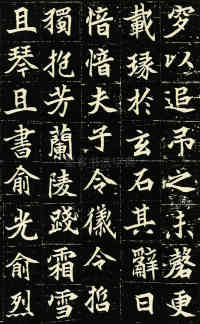 穸以追吊之未磬更
載瑑於玄石其辭曰
愔愔夫子令儀令哲
獨抱芳蘭陵踐霜雪
且琴且書俞光俞烈